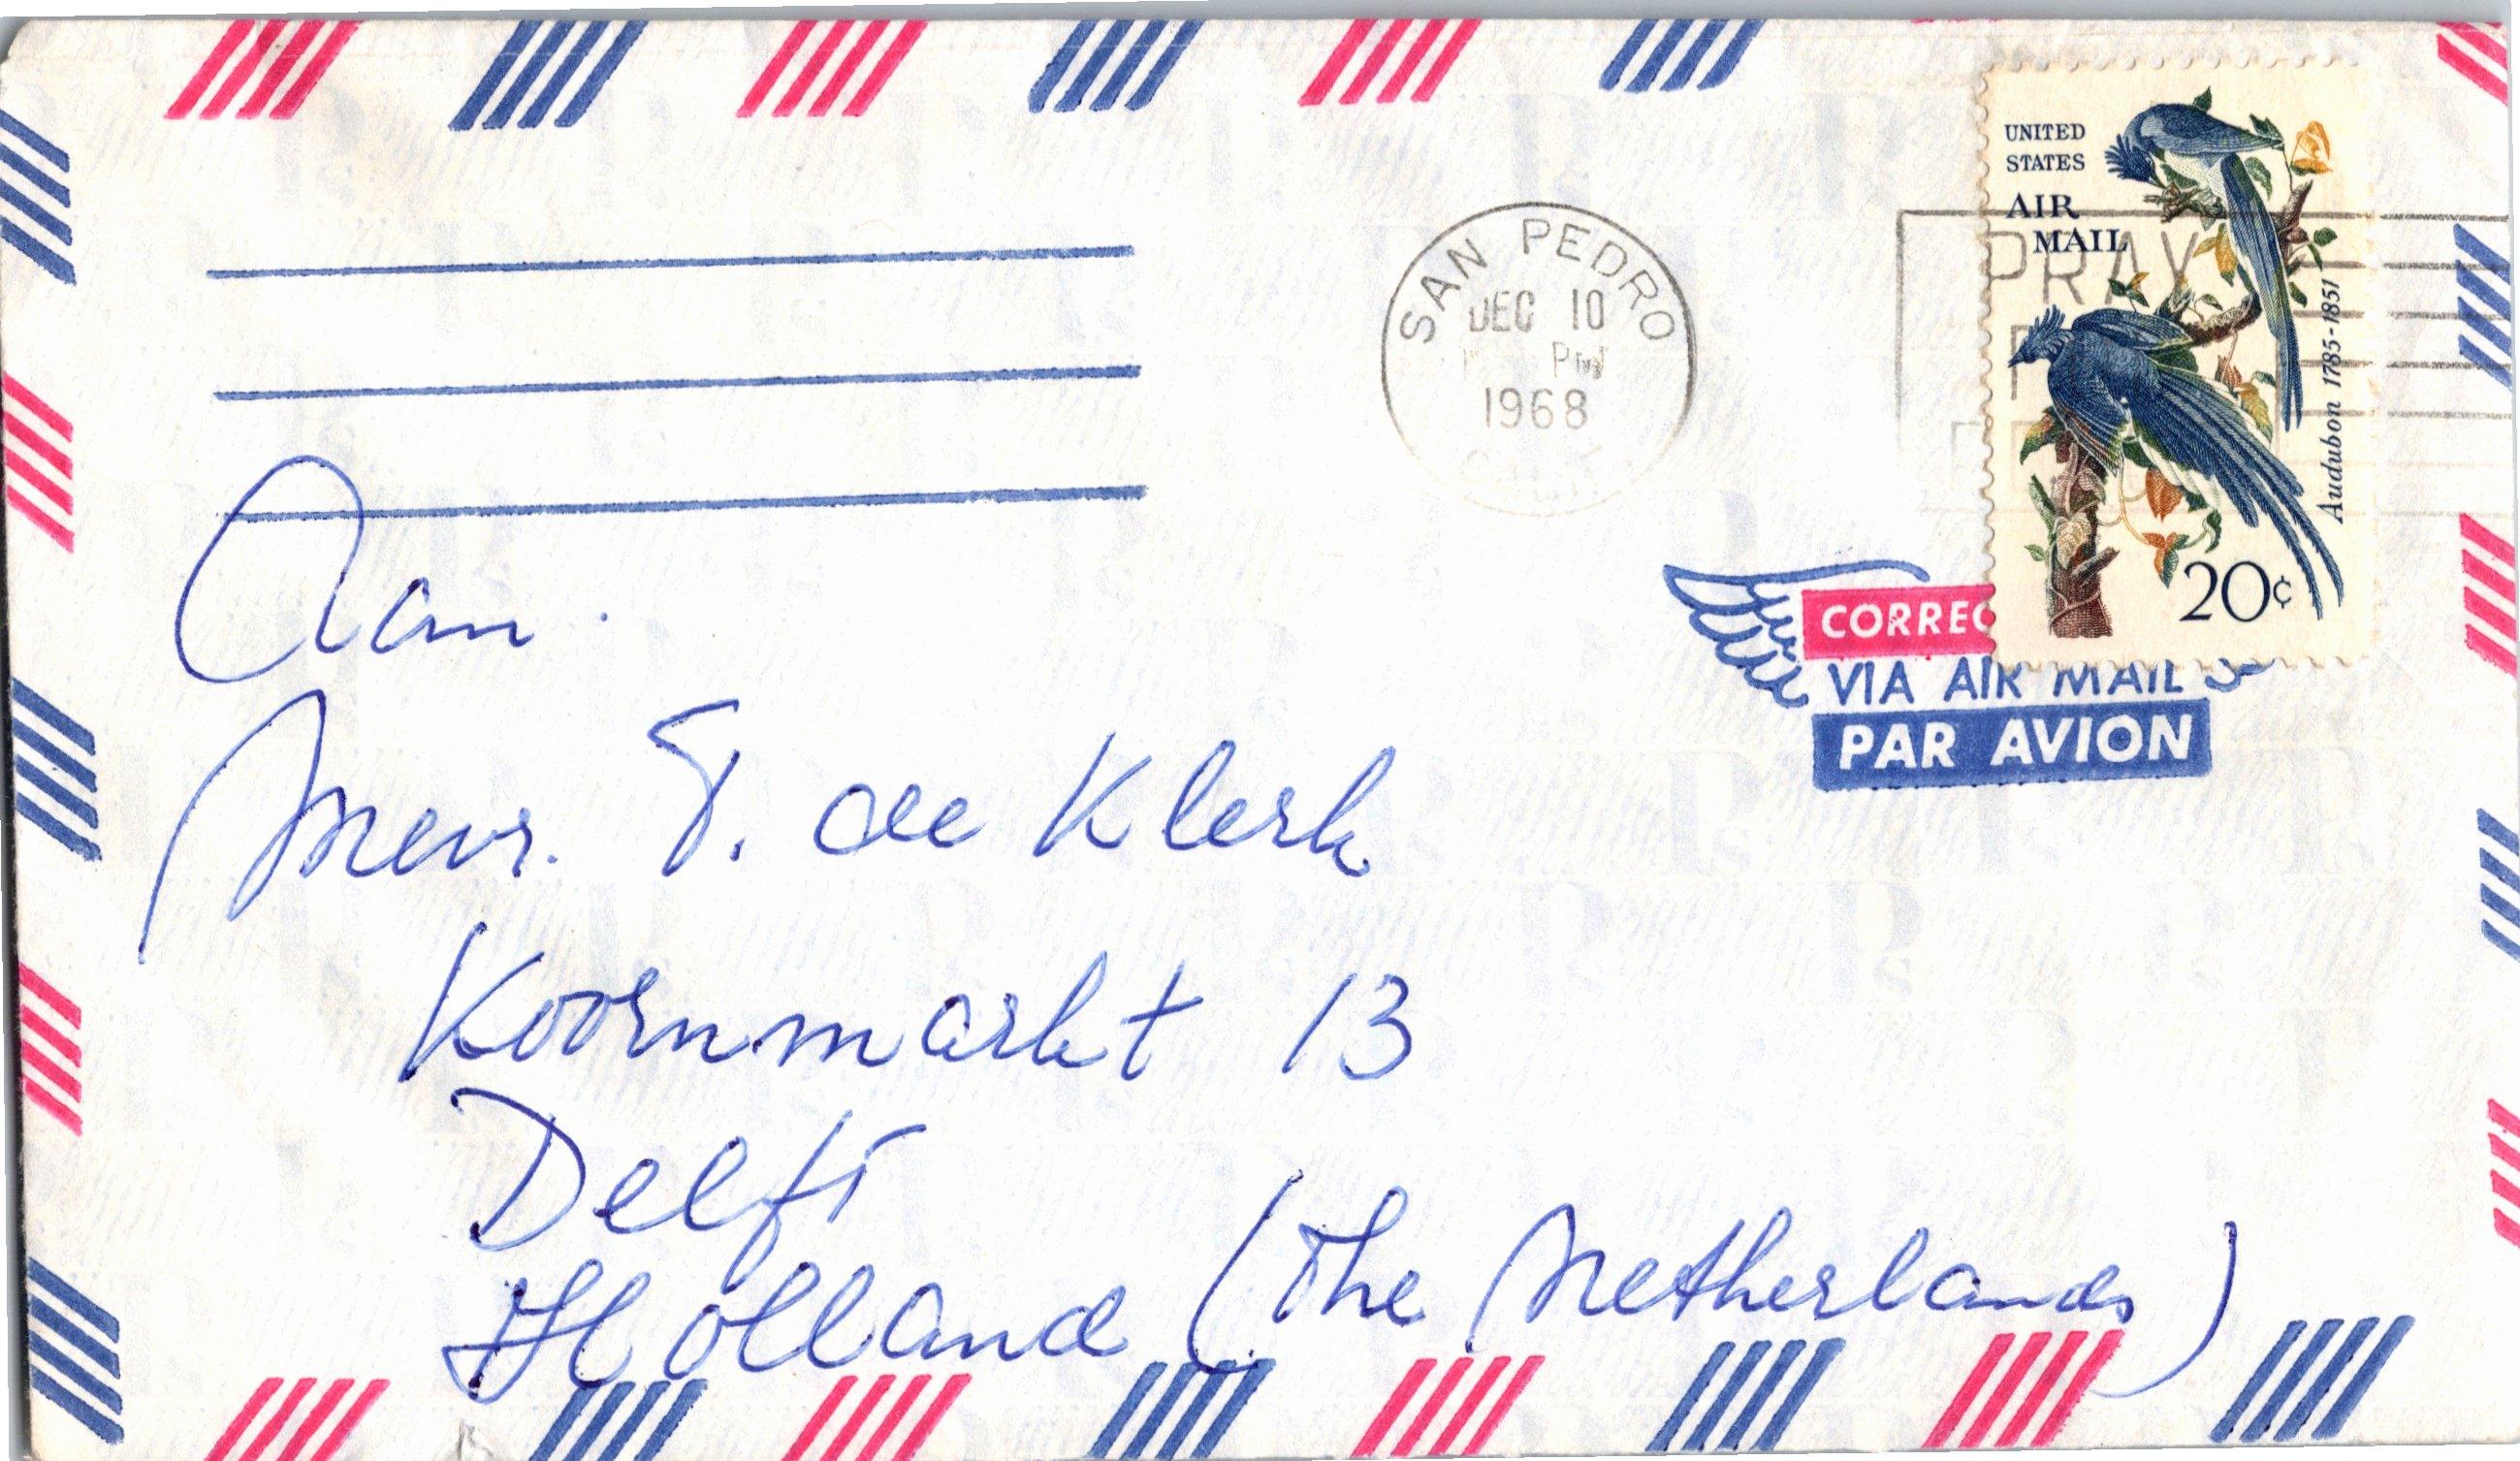 UNITED
STATES
AIR
MAIL
Audubon 1785-1851
20¢
SAN PEDRO
DEC 10
PM
1968
PRAY
CORREO
VIA AIR MAIL
PAR AVION
Aan.
Mevr. T. de Klerk
Koornmarkt 13
Delft
Holland (the Netherlands)